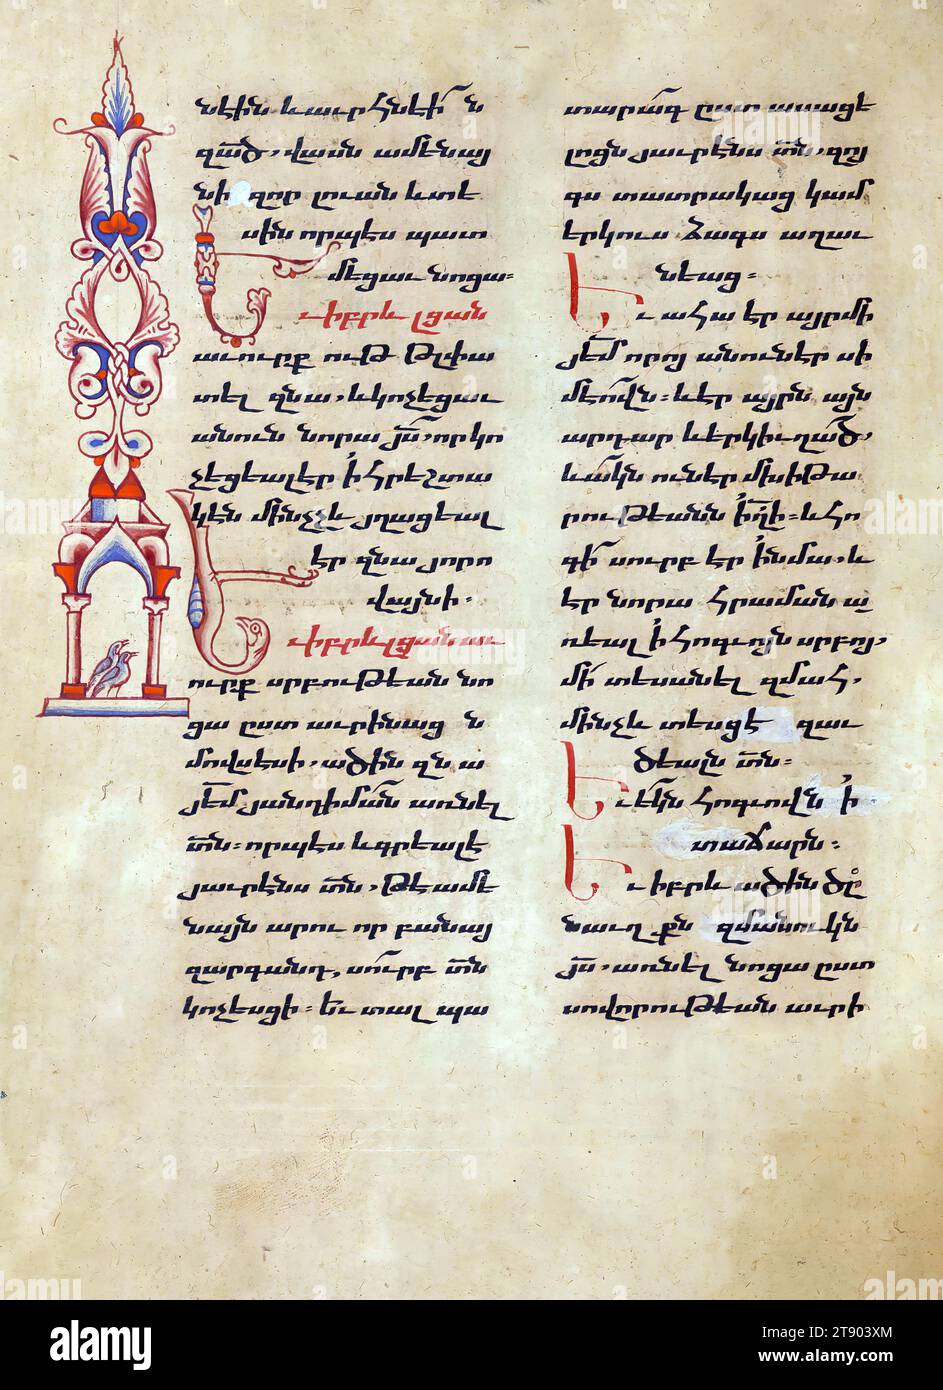 նէին և աւրհնէի՟ն
զա՟ծ, վասն ամենայ
նի զոր լուան և տե
սին որպէս պատ
մեցաւ նոցա։
Եւ իբրև լցան
աւուրք ութ թլփա
տել զնա, և կոչեցաւ
անուն նորա յ՟ս, որ կո
չեցեալ էր ի հրեշտա
կէն մինչչև յղացեալ
էր զնա յորո
վայնի.
Եւ իբրև լցան աւ
ուրք սրբութեան նո
ցա ըստ աւրինացն
մովսեսի, ածին զնա
յէ՟մ յանդիման առնել
տ՟ն։ որպէս և գրեալ է
յաւրէնս տ՟ն, թէ ամե
նայն արու որ բանայ
զարգանդ, սուրբ տ՟ն
կոչեսցի։ Եւ տալ պա
տարագ ըստ ասացե
լոցն յաւրէնս տ՟ն, զոյ
գս տատրակաց կամ
երկուս ձագս աղաւ
նեաց։
Եւ ահա էր այր մի
յէ՟մ որոյ անուն էր սի
մէովն։ և էր այրն այն
արդար և երկիւղա՟ծ,
և ակն ունէր մխիթա
րութեանն ի՟ղի։ և հո
գի սուրբ էր ի նմա, և
էր նորա հրաման ա
ռեալ ի հոգւոյն սրբոյ,
մի տեսանել զմահ,
մինչև տեսցէ զաւ
ծեալն տ՟ն։
Եւ եկն հոգւովն ի
տաճարն։
Եւ իբրև ածին ծը
նաւղքն զմանուկն
յ՟ս, առնել նոցա ըստ
սովորութեան աւրի
alamy
Image ID: 2T903XM
www.alamy.com